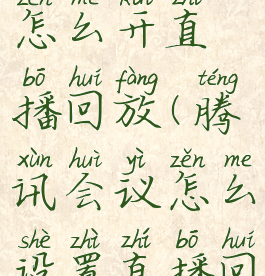 zěn me kāi zhí
怎么开直
bō huí fàng téng
播回放(腾
xùn huì yì zěn me
讯会议怎么
shè zhì zhí bō huí
设置直播回